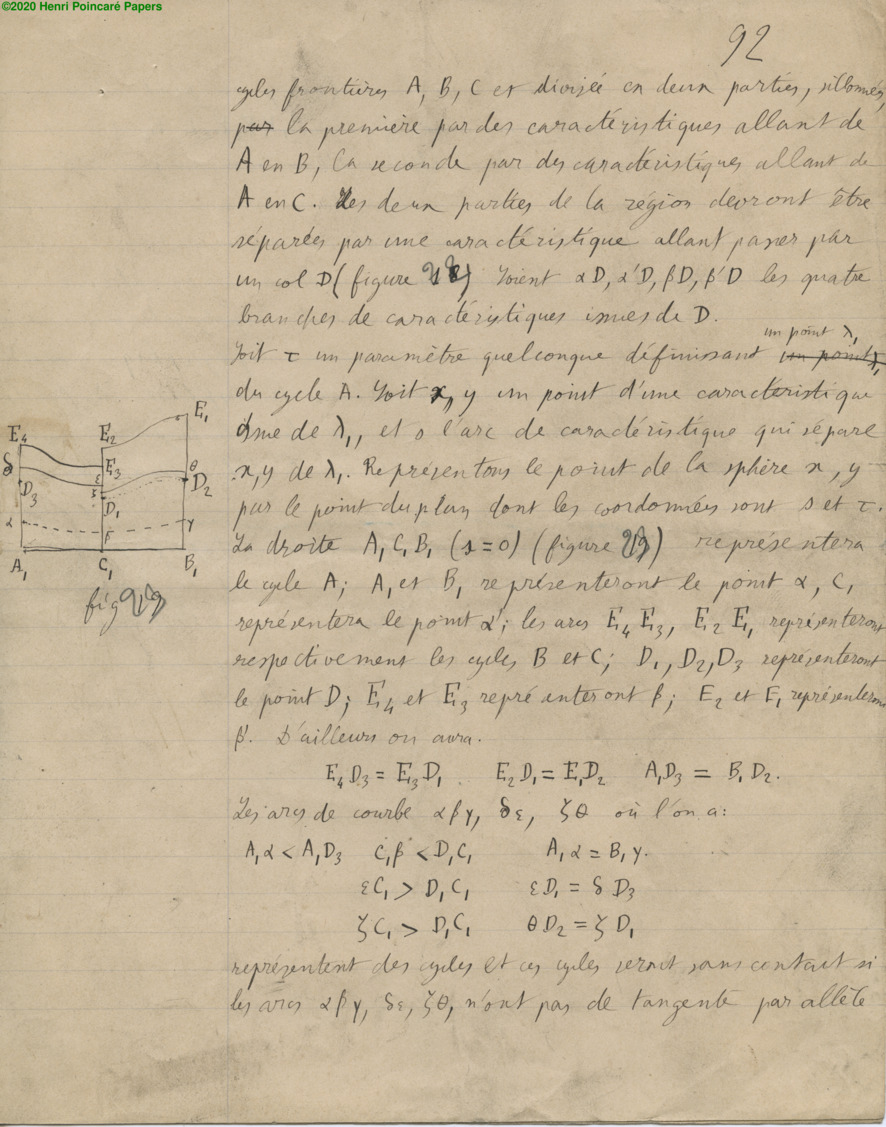 ©2020 Henri Poincaré Papers
92
cycles frontières A, B, C et divisée en deux parties, sillonnées,
par la première par des caractéristiques allant de
A en B, la seconde par des caractéristiques allant de
A en C. Les deux parties de la région devront être
séparées par une caractéristique allant passer par
un col D (figure Soient αD, α'D, βD, β'D les quatre
branches de caractéristiques issues de D.
un point λ,
Soit τ un paramètre quelconque définissant un point λ,
du cycle A. Soit x, y un point d'une caractéristique
issue de λ₁, et s l'arc de caractéristique qui sépare
x, y de λ₁. Représentons le point de la sphère x, y
par le point du plan dont les coordonnées sont s et τ.
La droite A₁C₁B₁ (s=0) (figure représentera
le cycle A; A₁ et B₁ représenteront le point α, C₁
représentera le point α'; les arcs E₄E₃, E₂E₁ représenteront
respectivement les cycles B et C; D₁, D₂, D₃ représenteront
le point D; E₄ et E₃ représenteront β; E₂ et E₁ représenteront
β'. D'ailleurs on aura.
E₄D₃ = E₃D₁ E₂D₁ = E₁D₂ A₁D₃ = B₁D₂.
Les arcs de courbe αβγ, δε, ζθ où l'on a:
A₁α < A₁D₃ C₁β < D₁C₁ A₁α = B₁γ.
εC₁ > D₁C₁ εD₁ = δD₃
ζC₁ > D₁C₁ θD₂ = ζD₁
représentent des cycles et ces cycles seront sans contact si
les arcs αβγ, δε, ζθ, n'ont pas de tangente parallèle
E₁
E₄ E₂
δ E₃ θ
ε
D₃ ζ D₂
D₁
α γ
A₁ C₁ B₁
fig